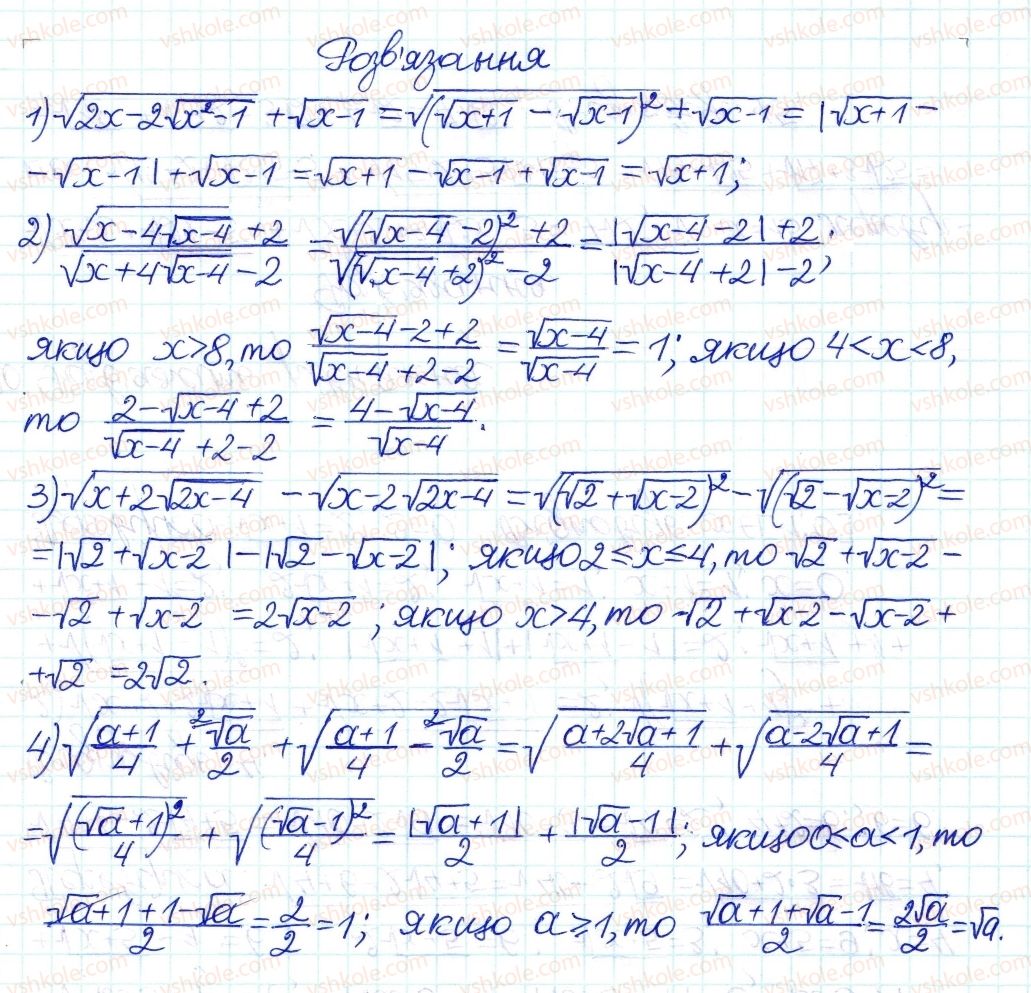 Розв'язання
1) √(2x-2√(x²-1)) + √(x-1) = √((√(x+1) - √(x-1))²) + √(x-1) = |√(x+1) -
- √(x-1)| + √(x-1) = √(x+1) - √(x-1) + √(x-1) = √(x+1);
2) (√(x-4√(x-4)) + 2)/(√(x+4√(x-4)) - 2) = (√((√(x-4) - 2)²) + 2)/(√((√(x-4) + 2)²) - 2) = (|√(x-4) - 2| + 2)/(|√(x-4) + 2| - 2);
якщо x>8, то (√(x-4) - 2 + 2)/(√(x-4) + 2 - 2) = √(x-4)/√(x-4) = 1; якщо 4<x<8,
то (2 - √(x-4) + 2)/(√(x-4) + 2 - 2) = (4 - √(x-4))/√(x-4).
3) √(x+2√(2x-4)) - √(x-2√(2x-4)) = √((√2 + √(x-2))²) - √((√2 - √(x-2))²) =
= |√2 + √(x-2)| - |√2 - √(x-2)|; якщо 2≤x≤4, то √2 + √(x-2) -
- √2 + √(x-2) = 2√(x-2); якщо x>4, то √2 + √(x-2) - √(x-2) +
+ √2 = 2√2.
4) √((a+1)/4 + ²√a/2) + √((a+1)/4 - ²√a/2) = √((a+2√a+1)/4) + √((a-2√a+1)/4) =
= √((√a+1)²/4) + √((√a-1)²/4) = |√a+1|/2 + |√a-1|/2; якщо 0<a<1, то
(√a+1+1-√a)/2 = 2/2 = 1; якщо a≥1, то (√a+1+√a-1)/2 = 2√a/2 = √a.